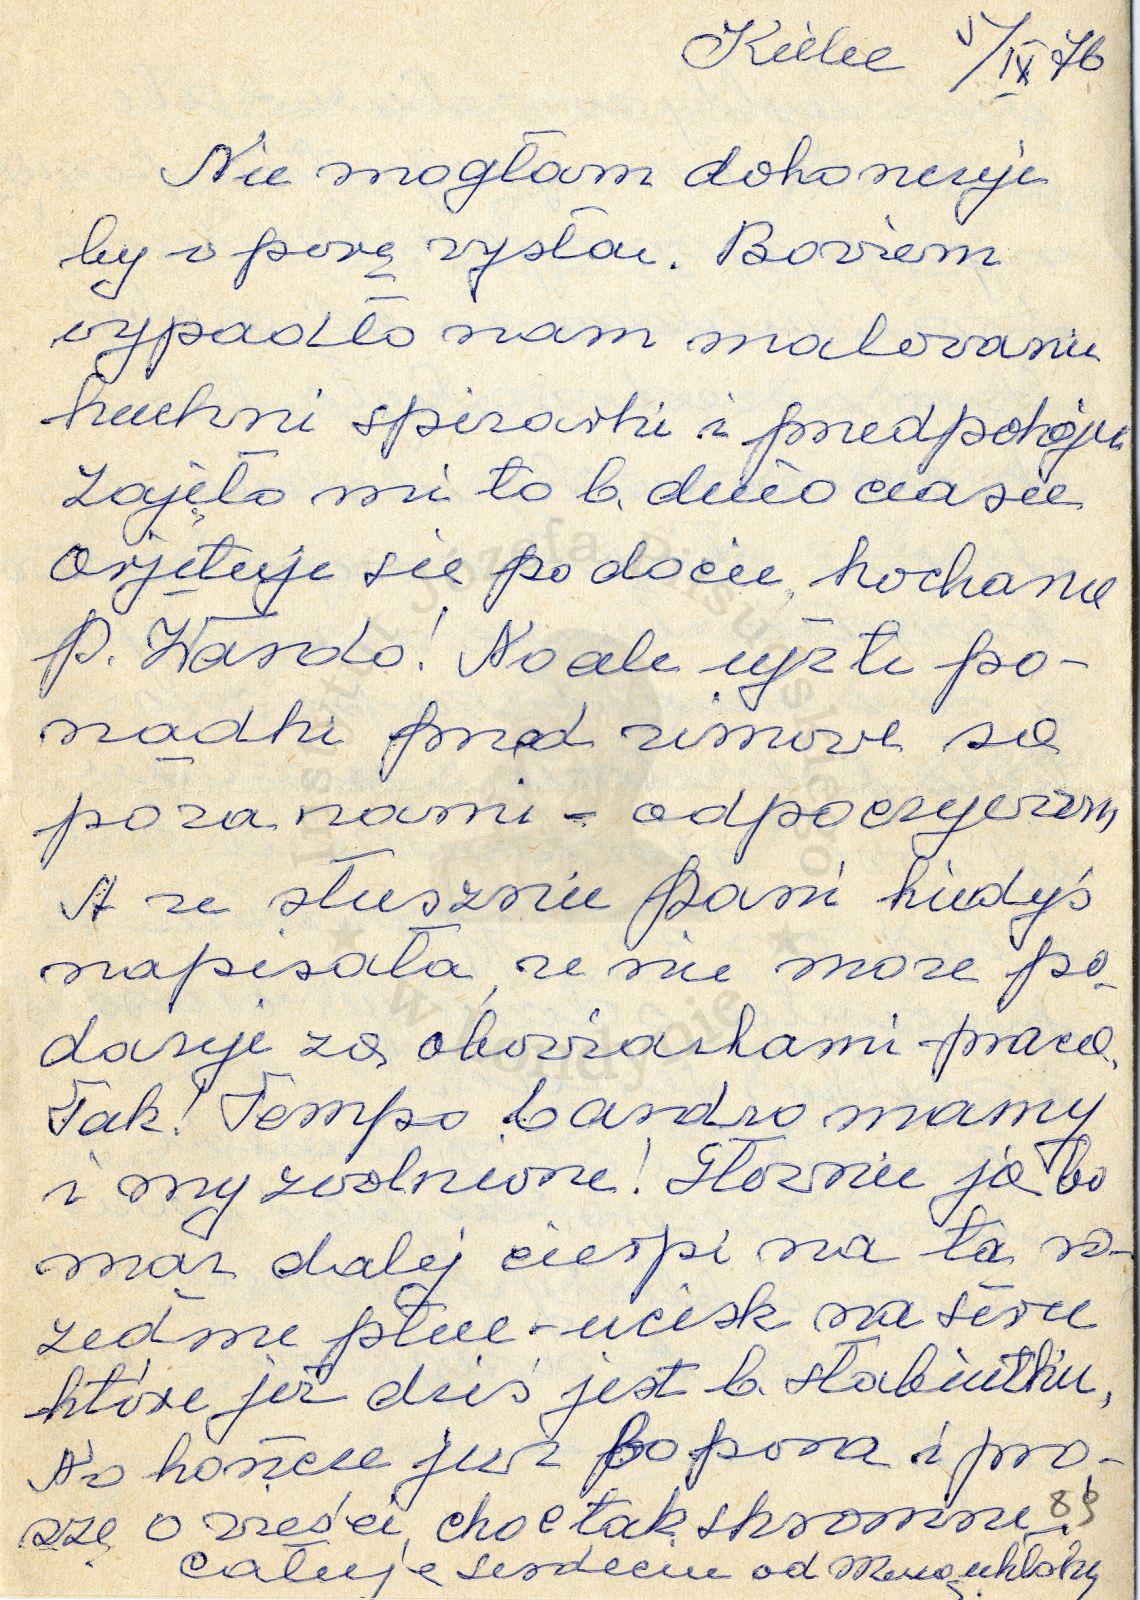 Kielce 5/IX 76
Nie mogłam dokończyć
by w porę wysłać. Bowiem
wypadło nam malowanie
kuchni spiżarki i przedpokoju
zajęło mi to b. dużo czasu
kochana
P. Wando! No ale już te po-
rządki przed zimowe są
poza nami - odpoczywam
A że słusznie Pani kiedyś
napisała, że nie może po-
dążyć za obowiązkami - pracą.
Tak! Tempo bardzo mamy
i my zwolnione! Głównie ja bo
mąż dalej cierpi na tą ro-
zedmę płuc - ucisk na serce
które już dziś jest b. słabiutkie,
No kończę już bo pora i pro-
szę o wieści, choć tak skromne
89
całuję serdecznie od
Instytut Józefa Piłsudskiego
w Londynie